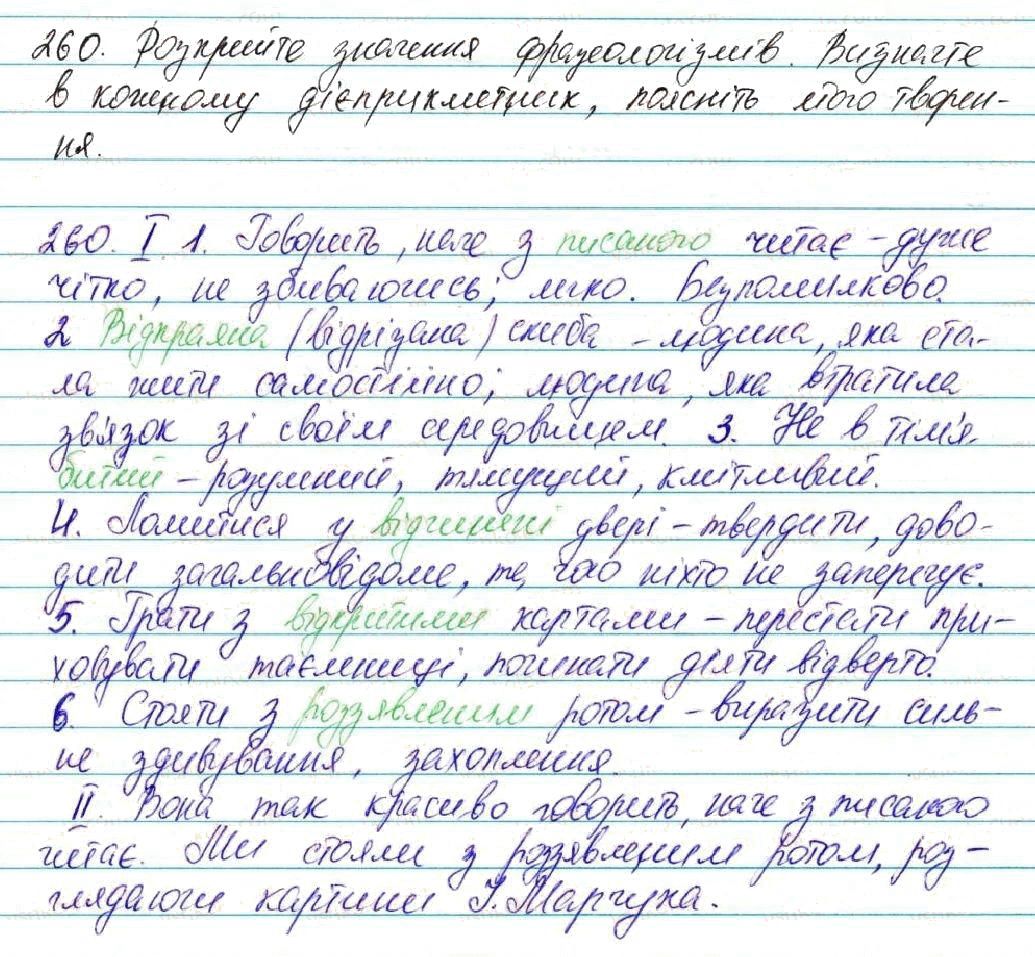 260. Розкрийте значення фразеологізмів. Визначте
в кожному дієприкметник, поясніть його творен-
ня.
260. I. 1. Говорить, наче з писаного читає – дуже
чітко, не збиваючись; легко. Безпомилково.
2 Відкраяна (відрізана) скиба – людина, яка ста-
ла жити самостійно; людина, яка втратила
зв'язок зі своїм середовищем. 3. Не в тім'я
битий – розумний, тямущий, кмітливий.
4. Ломитися у відчинені двері – твердити, дово-
дити загальновідоме, те, чого ніхто не заперечує.
5. Грати з відкритими картами – перестати при-
ховувати таємниці, починати діяти відверто.
6. Стояти з роззявленим ротом – виразити силь-
не здивування, захоплення.
II. Вона так красиво говорить, наче з писаного
читає. Ми стояли з роззявленим ротом, роз-
глядаючи картини І. Марчука.